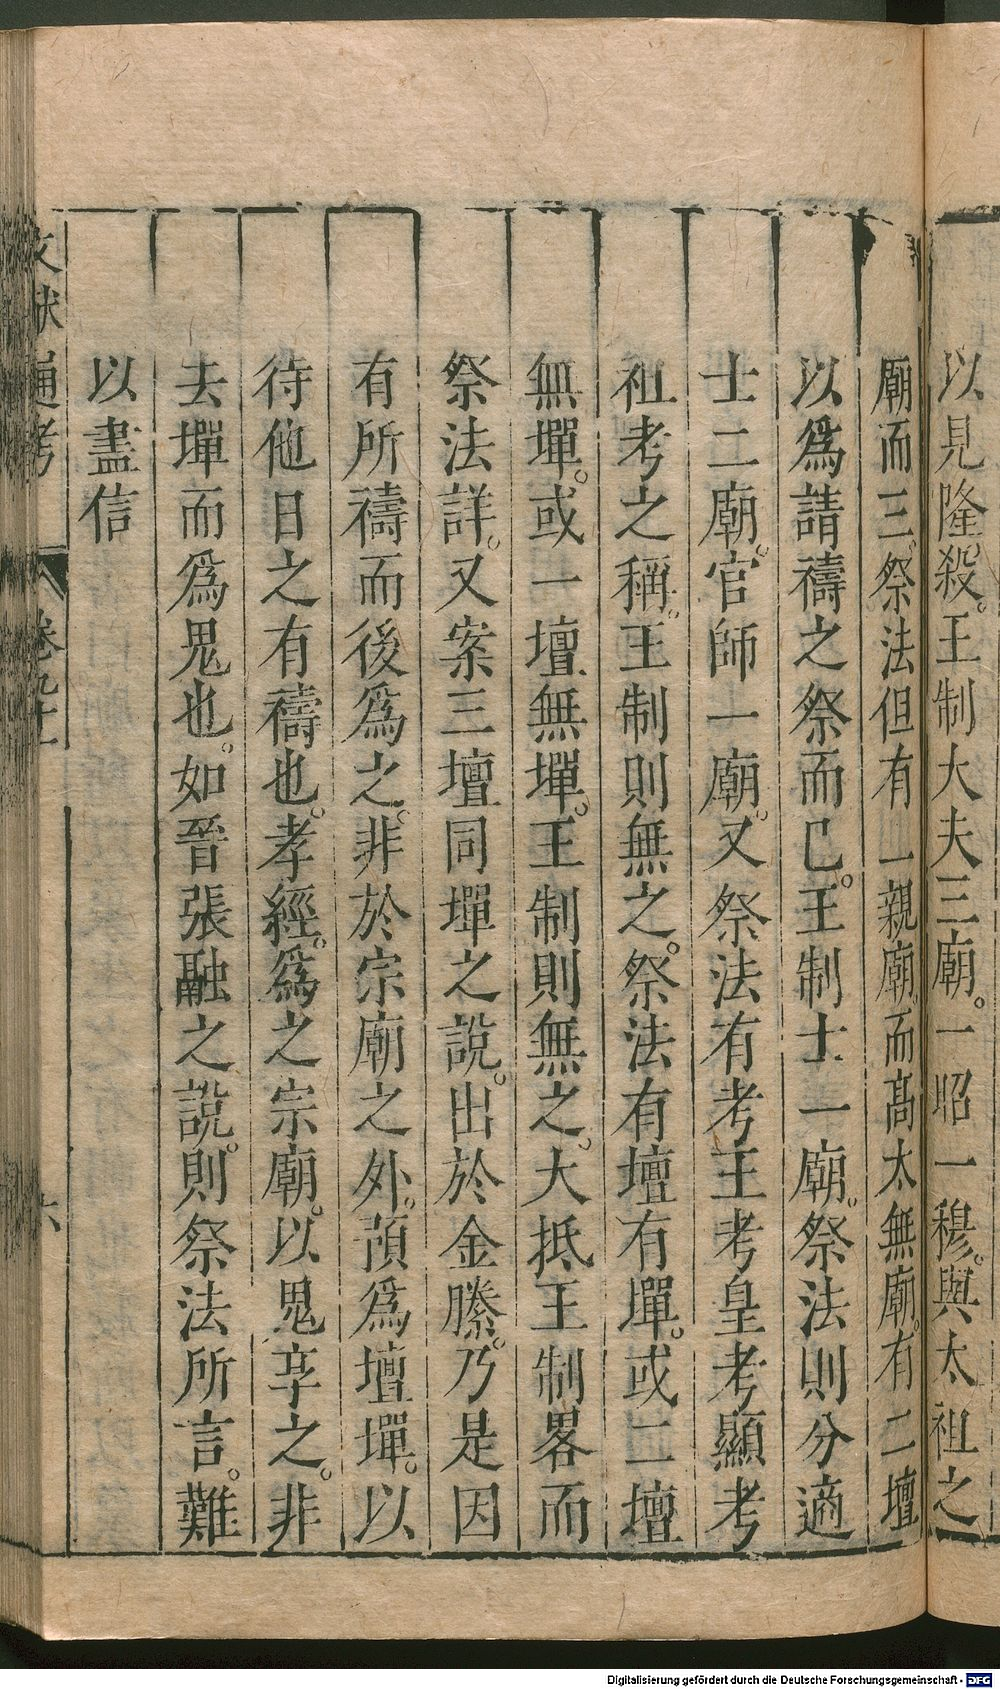 以見隆殺。王制大夫三廟。一昭一穆。與太祖之
廟而三。祭法但有一親廟。而高太無廟。有二壇
以爲請禱之祭而已。王制士一廟。祭法則分適
士二廟。官師一廟。又祭法有考王考皇考顯考
祖考之稱。王制則無之。祭法有壇有墠。或二壇
無墠。或一壇無墠。王制則無之。大抵王制畧而
祭法詳。又案三壇同墠之說。出於金縢。乃是因
有所禱而後爲之。非於宗廟之外。預爲壇墠。以
待他日之有禱也。孝經。爲之宗廟。以鬼享之。非
去墠而爲鬼也。如晉張融之說。則祭法所言。難
以盡信
文獻通考 卷九十一 六
Digitalisierung gefördert durch die Deutsche Forschungsgemeinschaft - DFG